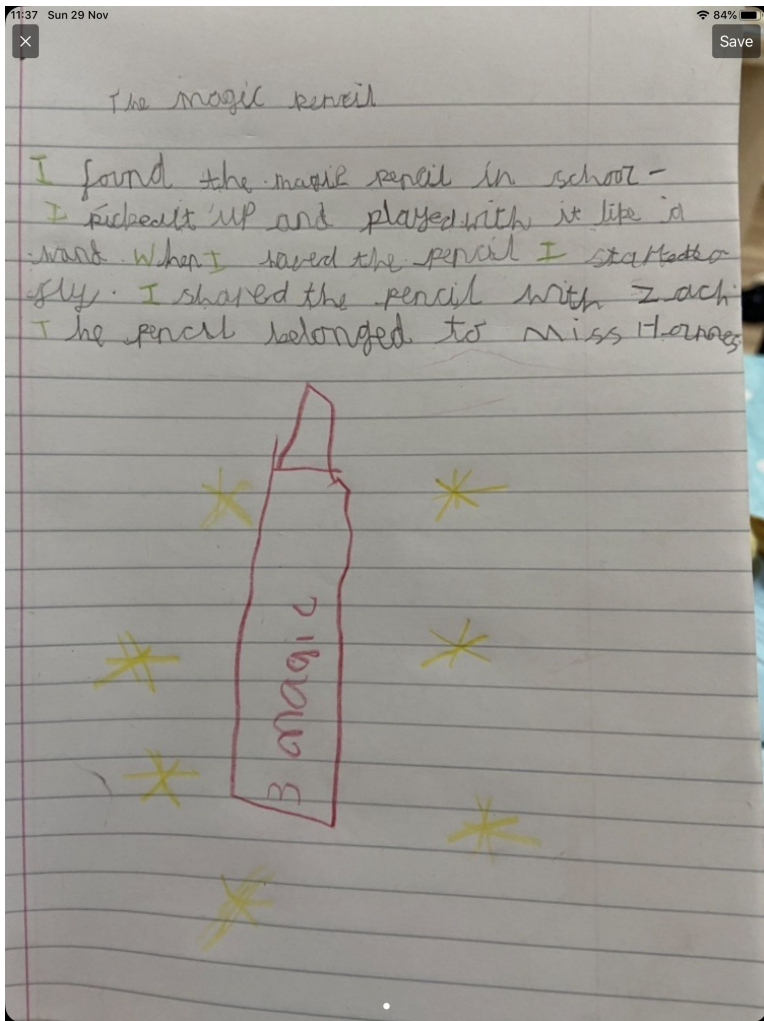 11:37 Sun 29 Nov
84%
Save
The magic pencil
I found the magic pencil in school-
I pickedit up and playedwith it like a
wand. When I waved the pencil I startedto
fly. I shared the pencil with Zach
The pencil belonged to Miss
magic